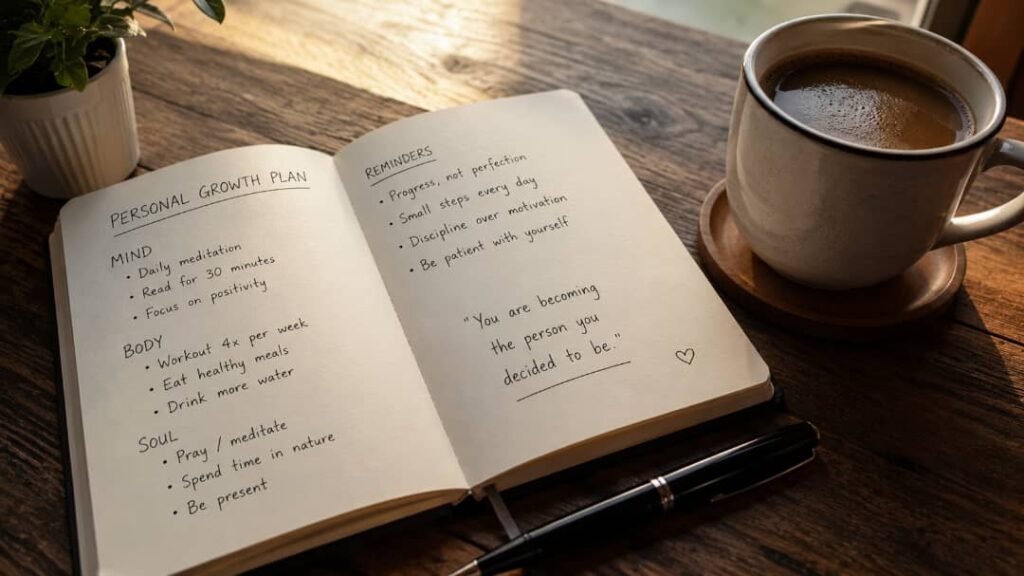 PERSONAL GROWTH PLAN
MIND
• Daily meditation
• Read for 30 minutes
• Focus on positivity
BODY
• Workout 4x per week
• Eat healthy meals
• Drink more water
SOUL
• Pray / meditate
• Spend time in nature
• Be present
REMINDERS
• Progress, not perfection
• Small steps every day
• Discipline over motivation
• Be patient with yourself
"You are becoming
the person you
decided to be."